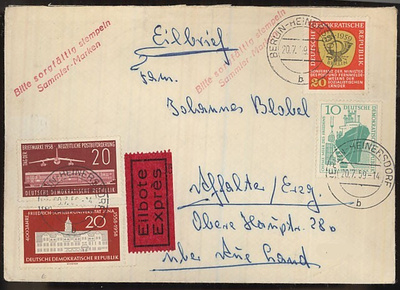 Bitte sorgfältig stempeln
Sammler-Marken
Bitte sorgfältig stempeln
Sammler-Marken
Eilbrief
Fam.
Johannes Blobel
Affalter/Erzg.
Obere Hauptstr. 28
über Aue Land
Eilbote
Exprès
BERLIN-HEINERSDORF
20.7.59
b
DEUTSCHE DEMOKRATISCHE REPUBLIK
1959
20
KONFERENZ DER MINISTER
SOZIALISTISCHEN
LÄNDER
10
BERLIN-HEINERSDORF
20.7.59-14
b
TAG DER BRIEFMARKE 1958
NEUZEITLICHE POSTBEFÖRDERUNG
20
DEUTSCHE DEMOKRATISCHE REPUBLIK
400 JAHRE
FRIEDRICH-SCHILLER-UNIVERSITÄT JENA
1558-1958
20
DEUTSCHE DEMOKRATISCHE REPUBLIK